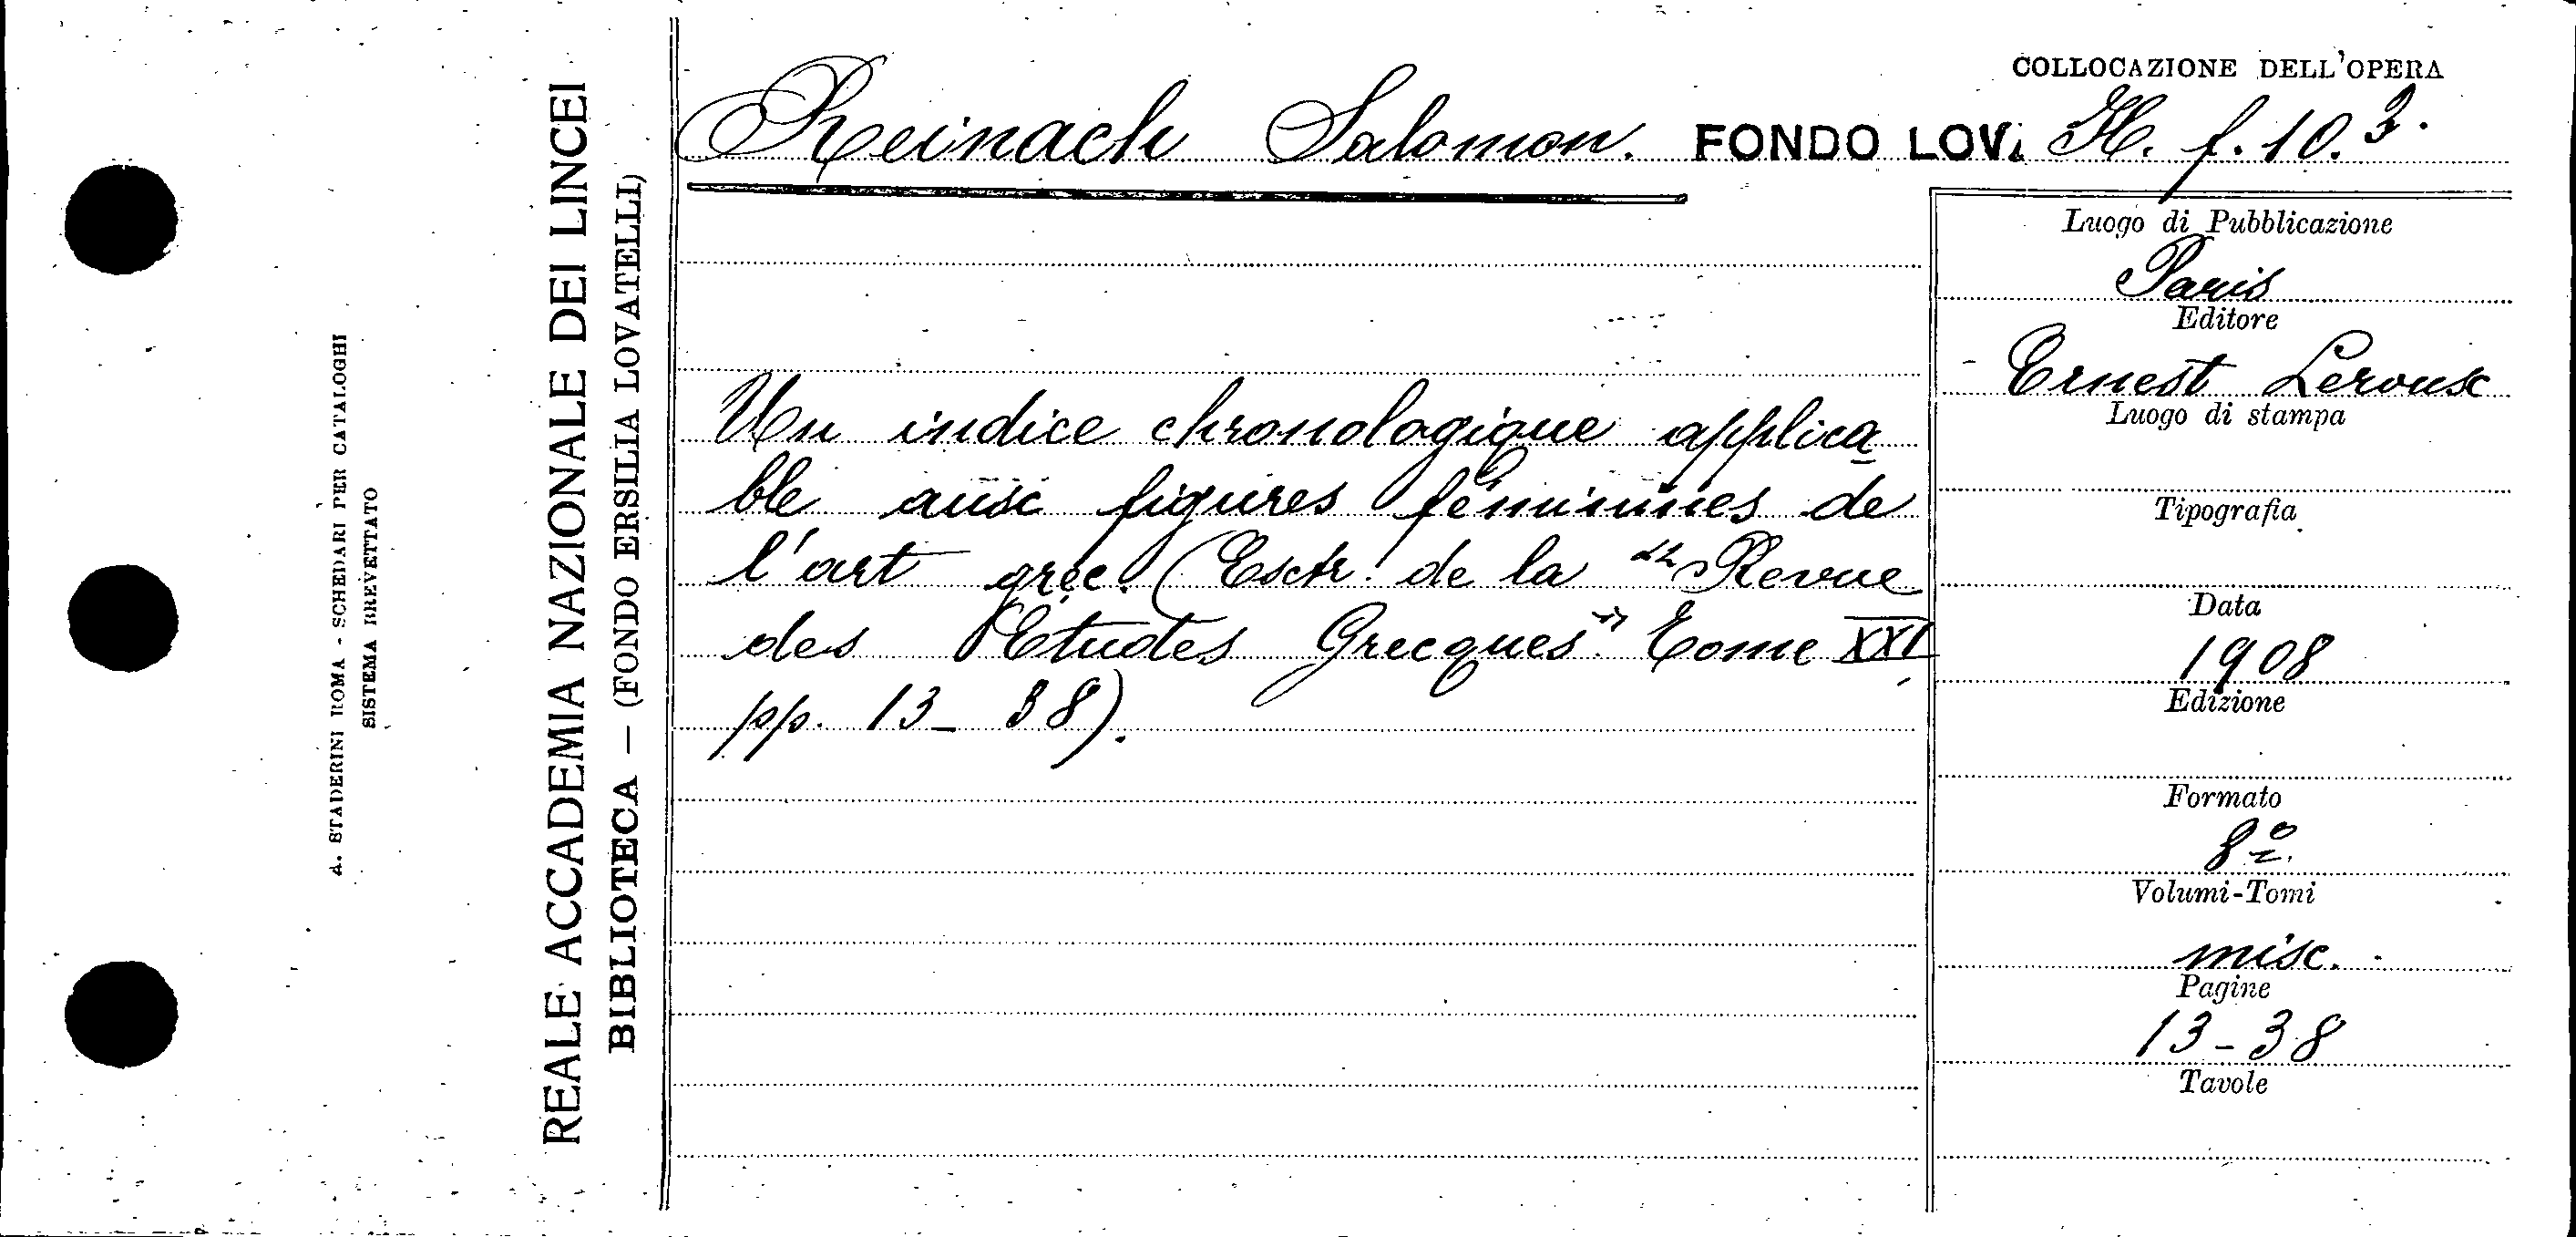 COLLOCAZIONE DELL'OPERA
Reinach Salomon. FONDO LOV. H. f. 10.3.
Luogo di Pubblicazione
Paris
Editore
Ernest Leroux
Luogo di stampa
Tipografia
Data
1908
Edizione
Formato
8º
Volumi-Tomi
misc.
Pagine
13-38
Tavole
Un indice chronologique applica
ble aux figures féminines de
l'art grec. (Extr. de la "Revue
des Études Grecques" Tome XXI,
pp. 13-38).
REALE ACCADEMIA NAZIONALE DEI LINCEI
BIBLIOTECA — (FONDO ERSILIA LOVATELLI)
A. STADERINI ROMA - SCHEDARI PER CATALOGHI
SISTEMA BREVETTATO